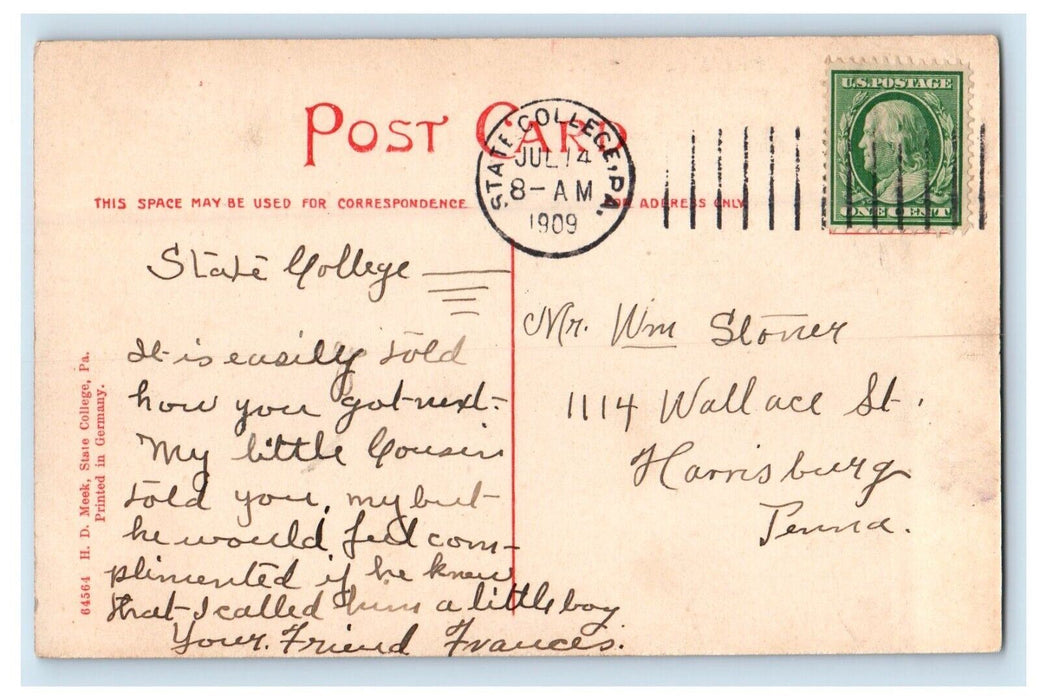 U.S. POSTAGE
ONE CENT
POST CARD
STATE COLLEGE, PA.
JUL 14
8-AM
1909
THIS SPACE MAY BE USED FOR CORRESPONDENCE
FOR ADDRESS ONLY
State College
It is easily told
how you got next-
My little Cousin
told you, my but
he would feel com-
plimented if he knew
that I called him a little boy
Your Friend Frances.
Mr. Wm Stoner
1114 Wallace St.
Harrisburg
Penna.
64564 H. D. Meek, State College, Pa.
Printed in Germany.